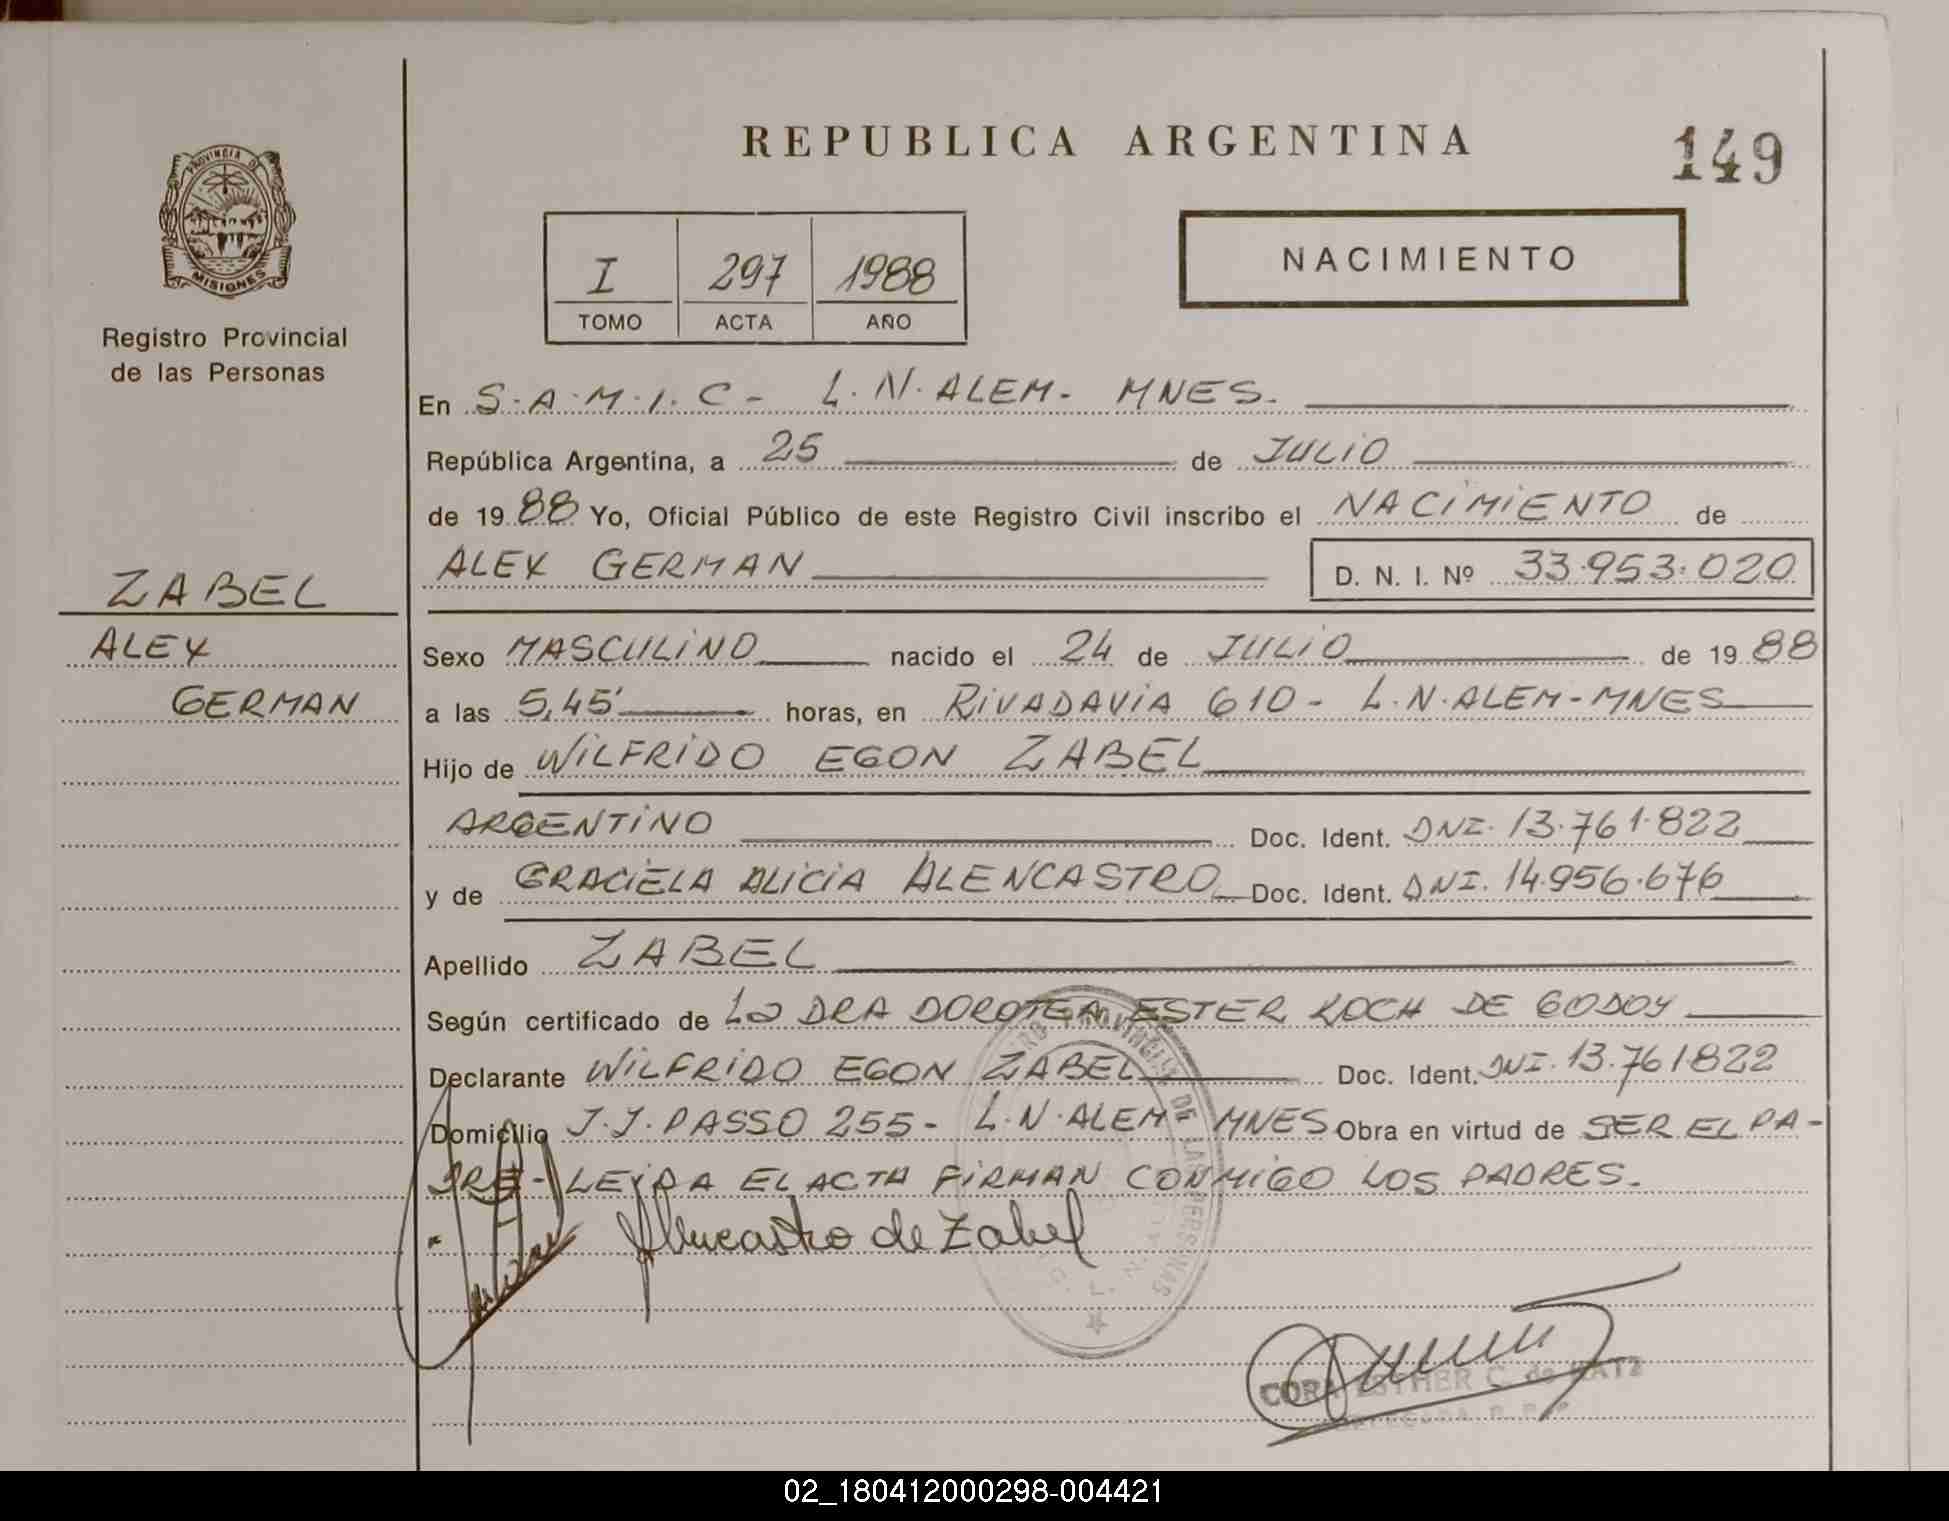 REPUBLICA ARGENTINA
149
PROVINCIA DE
MISIONES
Registro Provincial
de las Personas
I 297 1988
TOMO ACTA AÑO
NACIMIENTO
En S.A.M.I.C - L.N.ALEM - MNES.
República Argentina, a 25 de JULIO
de 1988 Yo, Oficial Público de este Registro Civil inscribo el NACIMIENTO de
ALEX GERMAN D. N. I. Nº 33.953.020
ZABEL
ALEX
GERMAN
Sexo MASCULINO nacido el 24 de JULIO de 1988
a las 5,45' horas, en RIVADAVIA 610 - L.N.ALEM - MNES
Hijo de WILFRIDO EGON ZABEL
ARGENTINO Doc. Ident. DNI. 13.761.822
y de GRACIELA ALICIA ALENCASTRO Doc. Ident. DNI. 14.956.676
Apellido ZABEL
Según certificado de La DRA DOROTEA ESTER KOCH DE GODOY
Declarante WILFRIDO EGON ZABEL Doc. Ident. DNI. 13.761822
Domicilio J.J. PASSO 255 - L.N.ALEM MNES Obra en virtud de SER EL PA-
DRE - LEIDA EL ACTA FIRMAN CONMIGO LOS PADRES.
Alencastro de Zabel
CORA ESTHER C. de KATZ
02_180412000298-004421